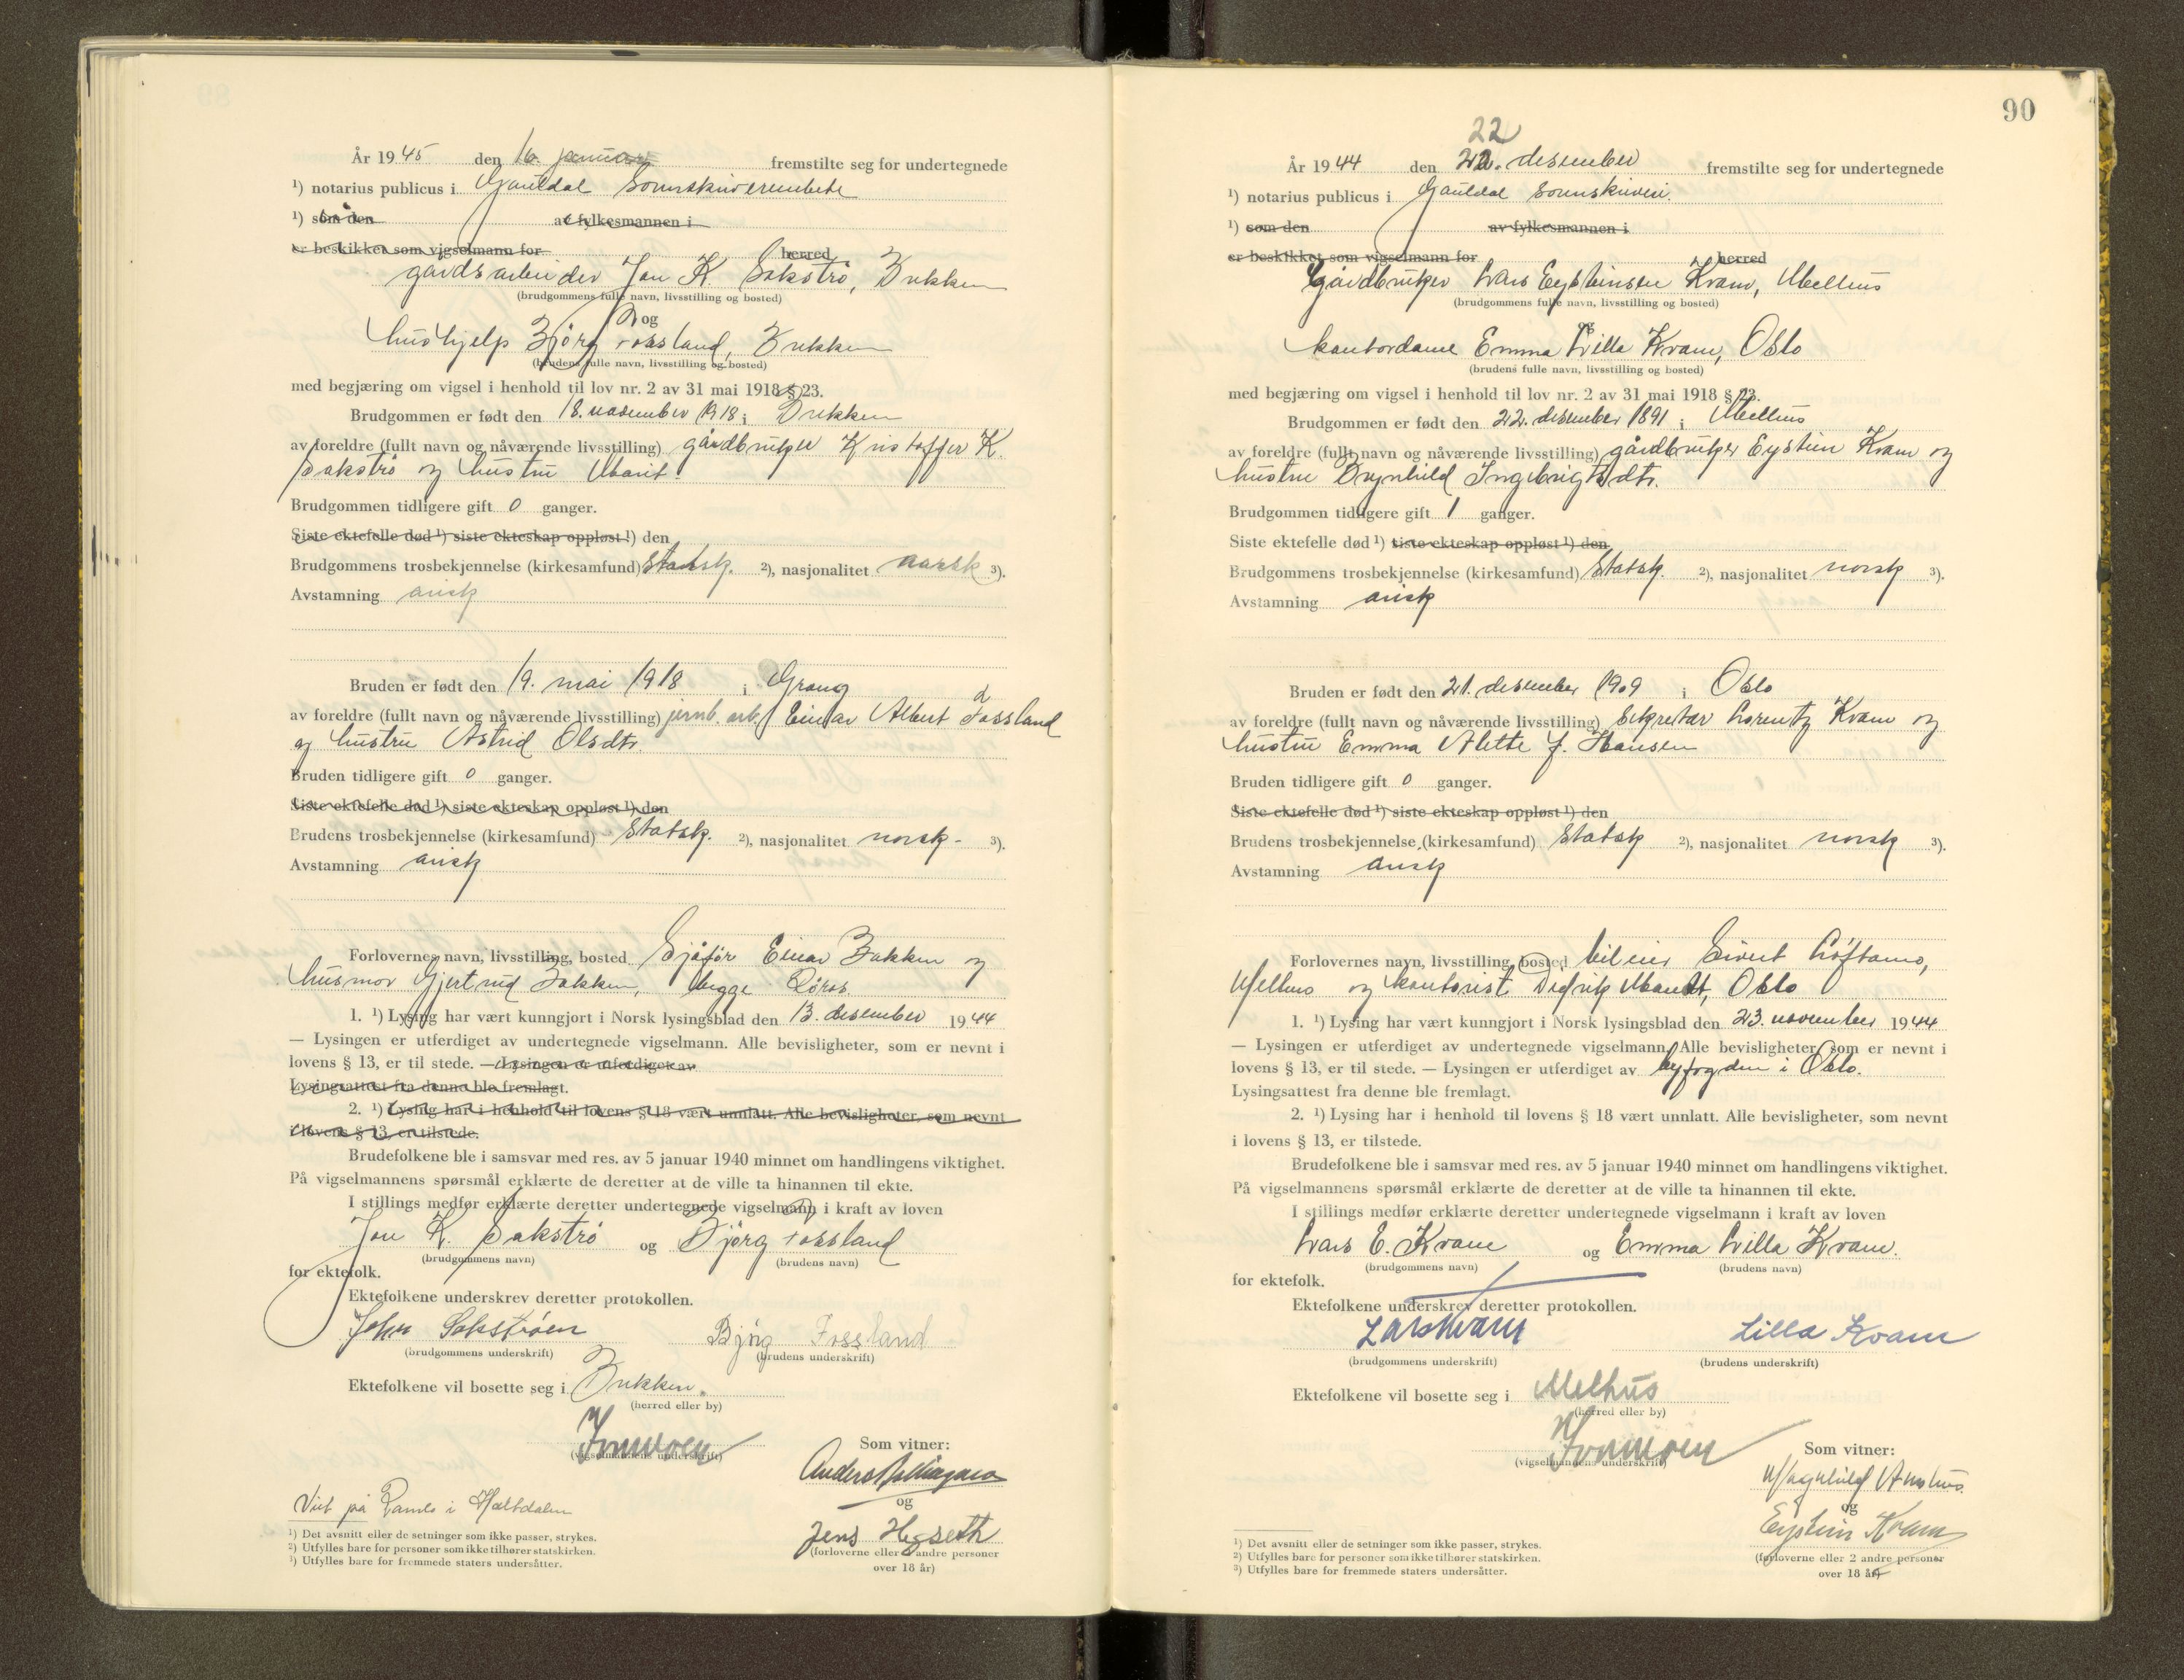 År 1945 den 16. januar fremstilte seg for undertegnede
¹) notarius publicus i Gauldal Sorenskriverembete
¹) som den av fylkesmannen i
er beskikket som vigselmann for herred
gårdsarbeider Jon K. Sakstrø, Brekken
(brudgommens fulle navn, livsstilling og bosted)
og
hushjelp Bjørg Fossland, Brekken
(brudens fulle navn, livsstilling og bosted)
med begjæring om vigsel i henhold til lov nr. 2 av 31 mai 1918 § 23.
Brudgommen er født den 18. november 1918 i Brekken
av foreldre (fullt navn og nåværende livsstilling) gårdbruker Kristoffer K.
Sakstrø og hustru Marit.
Brudgommen tidligere gift 0 ganger.
Siste ektefelle død ¹) siste ekteskap oppløst ¹) den
Brudgommens trosbekjennelse (kirkesamfund) Statsk. ²), nasjonalitet norsk ³).
Avstamning arisk
Bruden er født den 19. mai 1918 i Grong
av foreldre (fullt navn og nåværende livsstilling) jernb. arb. Einar Albert Fossland
og hustru Astrid Olsdtr.
Bruden tidligere gift 0 ganger.
Siste ektefelle død ¹) siste ekteskap oppløst ¹) den
Brudens trosbekjennelse (kirkesamfund) Statsk. ²), nasjonalitet norsk - ³).
Avstamning arisk
Forlovernes navn, livsstilling, bosted Sjåfør Einar Bakken og
husmor Gjertrud Bakken, begge Røros
1. ¹) Lysing har vært kunngjort i Norsk lysingsblad den 13. desember 1944
— Lysingen er utferdiget av undertegnede vigselmann. Alle bevisligheter, som er nevnt i
lovens § 13, er til stede. — Lysingen er utferdiget av
Lysingsattest fra denne ble fremlagt.
2. ¹) Lysing har i henhold til lovens § 18 vært unnlatt. Alle bevisligheter, som nevnt
i lovens § 13, er tilstede.
Brudefolkene ble i samsvar med res. av 5 januar 1940 minnet om handlingens viktighet.
På vigselmannens spørsmål erklærte de deretter at de ville ta hinannen til ekte.
I stillings medfør erklærte deretter undertegnede vigselmann i kraft av loven
Jon K. Sakstrø og Bjørg Fossland
(brudgommens navn) (brudens navn)
for ektefolk.
Ektefolkene underskrev deretter protokollen.
John Sakstrøen Bjørg Fossland
(brudgommens underskrift) (brudens underskrift)
Ektefolkene vil bosette seg i Brekken.
(herred eller by)
(vigselmannens underskrift)
Som vitner:
Anders
og
Jens Hegseth
(forloverne eller 2 andre personer
over 18 år)
Viet på Ramlo i Haltdalen
¹) Det avsnitt eller de setninger som ikke passer, strykes.
²) Utfylles bare for personer som ikke tilhører statskirken.
³) Utfylles bare for fremmede staters undersåtter.
90
22
År 1944 den 22. desember fremstilte seg for undertegnede
¹) notarius publicus i Gauldal sorenskriveri.
¹) som den av fylkesmannen i
er beskikket som vigselmann for herred
Gårdbruker Lars Eysteinsen Kvam, Melhus
(brudgommens fulle navn, livsstilling og bosted)
og
kontordame Emma Lilla Kvam, Oslo
(brudens fulle navn, livsstilling og bosted)
med begjæring om vigsel i henhold til lov nr. 2 av 31 mai 1918 § 23.
Brudgommen er født den 22. desember 1891 i Melhus
av foreldre (fullt navn og nåværende livsstilling) gårdbruker Eystein Kvam og
hustru Brynhild Ingebrigtsdtr.
Brudgommen tidligere gift 1 ganger.
Siste ektefelle død ¹) siste ekteskap oppløst ¹) den
Brudgommens trosbekjennelse (kirkesamfund) Statsk. ²), nasjonalitet norsk ³).
Avstamning arisk
Bruden er født den 21. desember 1909 i Oslo
av foreldre (fullt navn og nåværende livsstilling) Sekretær Lorentz Kvam og
hustru Emma Alette f. Hansen
Bruden tidligere gift 0 ganger.
Siste ektefelle død ¹) siste ekteskap oppløst ¹) den
Brudens trosbekjennelse (kirkesamfund) Statsk ²), nasjonalitet norsk ³).
Avstamning arisk
Forlovernes navn, livsstilling, bosted bileier Sivert Løftamo,
Melhus og kontorist Didrik Mandt, Oslo
1. ¹) Lysing har vært kunngjort i Norsk lysingsblad den 23. november 1944
— Lysingen er utferdiget av undertegnede vigselmann. Alle bevisligheter, som er nevnt i
lovens § 13, er til stede. — Lysingen er utferdiget av byfogden i Oslo.
Lysingsattest fra denne ble fremlagt.
2. ¹) Lysing har i henhold til lovens § 18 vært unnlatt. Alle bevisligheter, som nevnt
i lovens § 13, er tilstede.
Brudefolkene ble i samsvar med res. av 5 januar 1940 minnet om handlingens viktighet.
På vigselmannens spørsmål erklærte de deretter at de ville ta hinannen til ekte.
I stillings medfør erklærte deretter undertegnede vigselmann i kraft av loven
Lars E. Kvam og Emma Lilla Kvam.
(brudgommens navn) (brudens navn)
for ektefolk.
Ektefolkene underskrev deretter protokollen.
Lars Kvam Lilla Kvam
(brudgommens underskrift) (brudens underskrift)
Ektefolkene vil bosette seg i Melhus
(herred eller by)
(vigselmannens underskrift)
Som vitner:
Magnhild
og
Eystein Kvam
(forloverne eller 2 andre personer
over 18 år)
¹) Det avsnitt eller de setninger som ikke passer, strykes.
²) Utfylles bare for personer som ikke tilhører statskirken.
³) Utfylles bare for fremmede staters undersåtter.